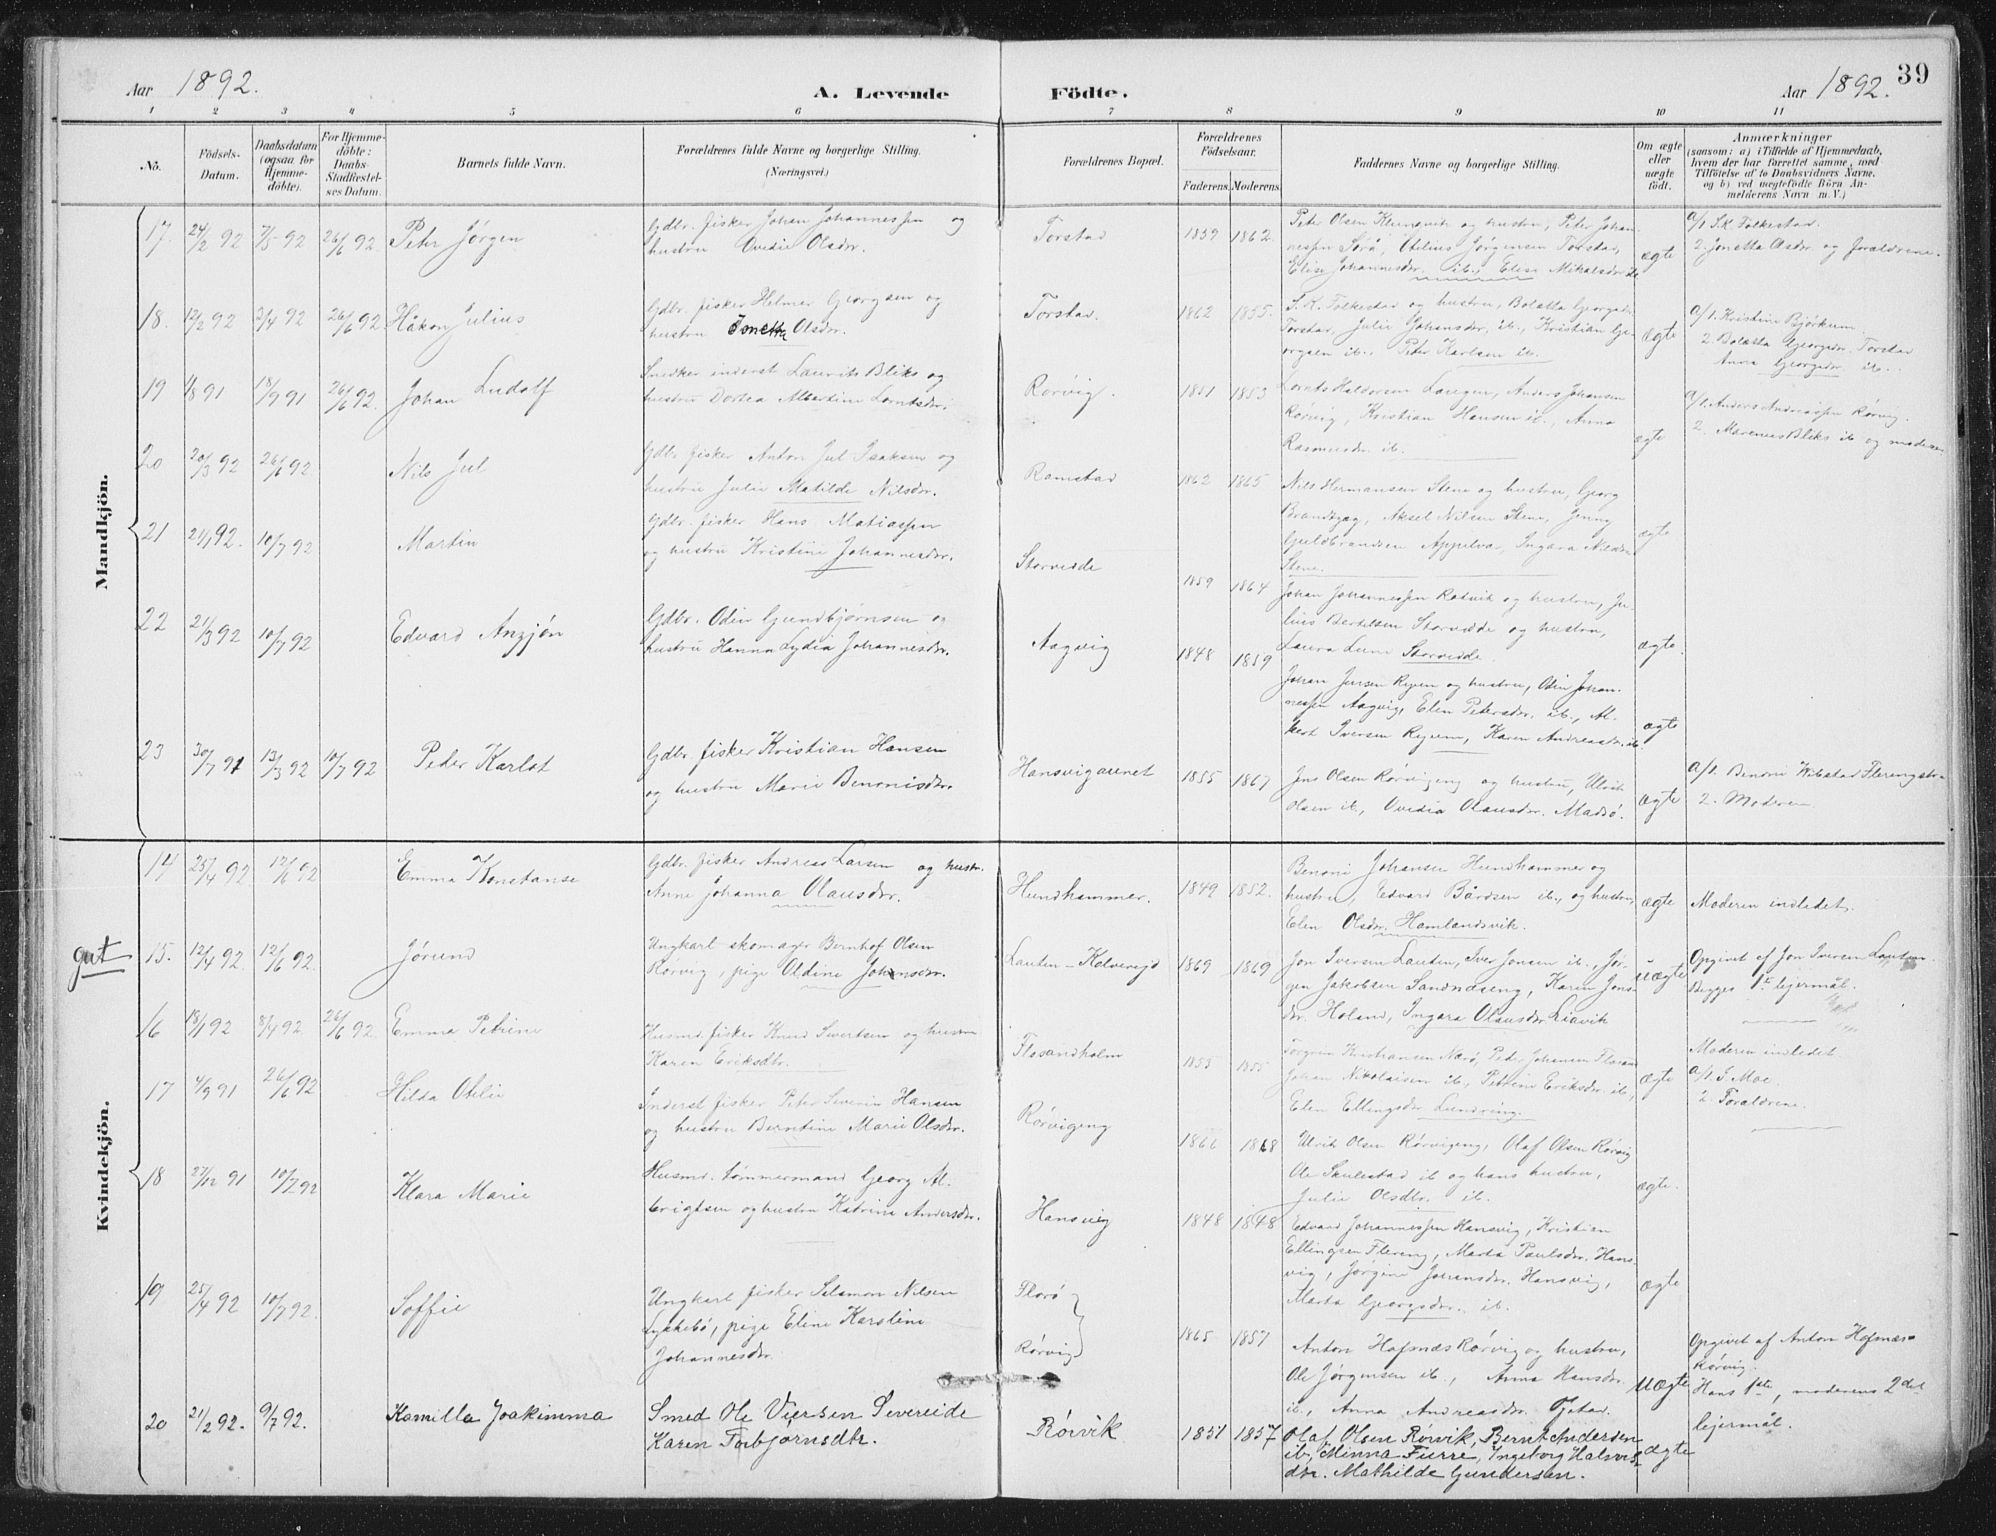 Aar 1892.
A. Levende
Födte.
Aar 1892.
39
1 2 3 4 5 6 7 8 9 10 11
No.
Födsels-Datum.
Daabsdatum (ogsaa for Hjemme-döbte).
For Hjemme-döbte: Daabs-Stadfestel-ses Datum.
Barnets fulde Navn.
Forældrenes fulde Navne og borgerlige Stilling.
(Næringsvei.)
Forældrenes Bopæl.
Forældrenes Födselsaar.
Faderens. Moderens.
Faddernes Navne og borgerlige Stilling.
Om ægte eller uægte födt.
Anmærkninger
(saasom: a) i Tilfælde af Hjemmedaab,
hvem der har forrettet samme, med
Tilföielse af to Daabsvidners Navne,
og b) ved uægtefödte Börn An-
melderens Navn m. V.)
Mandkjön.
17. 24/2 92 7/5 92 26/6 92 Peter Jørgen
Gdbr. fisker Johan Johannessen og
hustru Ovedie Olsdr.
Torstad 1859 1862
Peter Olsen og hustru, Peter Johan-
nessen Sørø, Otelius Jørgensen Torstad,
Elise Johannesdr. ib., Elise Mikalsdr. ib.
ægte
a/1 S.K. Folkestad.
2. Jonetta Olsdr og forældrene.
18. 12/2 92 3/4 92 26/6 92 Håkon Julius
Gdbr. fisker Helmer Georgsen og
hustru Jonetta Olsdr.
Torstad. 1862 1855.
S. K. Folkestad og hustru, Boletta Georgsdr.
Torstad, Julie Johansdr. ib., Kristian Ge-
orgsen ib., Peter Karlsen ib.
ægte
a/1. Kristine Bjørkum.
2. Boletta Georgsdr. Torstad
Anna Georgsdr. ib.
19 1/8 91 18/9 91 26/6 92. Johan Ludolf
Snedker inderst Laurits Bliks og
hustru Dortea Albertine Lorntsdr.
Rørvig. 1851 1853
Lornts Haldorsen Laugen, Anders Johansen
Rørvig, Kristian Hansen ib., Anna
Rasmusdr. ib.
ægte
a/1. Anders Andreassen Rørvig.
2. Marenus Bliks ib og moderen
20 20/3 92 26/6 92 Nils Jul
Gdbr. fisker Anton Jul Isaksen og
hustru Julie Matilde Nilsdr.
Ramstad 1862 1865
Nils Hermansen Stene og hustru, Georg
Brandtzæg, Aksel Nilsen Stene, Jenny
Guldbrandsen Appelvær, Ingara Nilsdr.
Stene.
ægte
21 92. 10/7 92 Martin
Gdbr. fisker Hans Matiassen
og hustru Kristine Johannesdr.
Storvedde 1859 1864
Johan Johannessen Rødvik og hustru, Ju-
lius Bertelsen Storvedde og hustru,
Laura Storvedde.
ægte.
22 21/3 92 10/7 92 Edvard Anzjøn
Gdbr. Odin Gundbjørnsen og
hustru Hanna Lydia Johannesdr.
Aagvig 1848 1859
Johan Jensen og hustru, Odin Johan-
nessen Aagvig, Elen Petersdr. ib., Al-
bert Iversen, Karen Andreasdr. ib
ægte
23 30/7 91 13/3 92 10/7 92 Peder Karlot
Gdbr. fisker Kristian Hansen
og hustru Marie Benonisdr.
Hansvigarenet 1855 1867
Jens Olsen Rørvigeng og hustru, Ulrik
Olsen ib., Ovedia Olausdr. Madsø.
ægte
a/1. Benoni Wibstad Flerengstr.
2. Moderen
Kvindekjön.
14 25/4 92 12/6 92 Emma Konstanse
Gdbr. fisker Andreas Larsen og hustr.
Anne Johanna Olausdr.
Hundhammer. 1849 1852.
Benoni Johansen Hundhammer og
hustru, Edvard Bårdsen ib., og hustru,
Elen Olsdr. Hamlandsvik.
ægte
Moderen indledet.
gut
15. 12/4 92. 12/6 92. Jørund
Ungkarl skomager Bernhof Olsen
Rørvig, pige Oldine Johnsdr.
Lauten-Kolvereid 1869 1869
Jon Iversen Lauten, Iver Jonsen ib., Jør-
gen Jakobsen Sandnæseng, Karen Jons-
dr. Holand, Ingara Olausdr. Liavik
uægte
Opgivet af Jon Iversen Lauten.
Begges 1ste lejermål.
16 18/1 92 8/4 92 26/6 92. Emma Petrine
Husmd. fisker Knud Sivertsen og hustru
Karen Eriksdtr.
Flosandholm 1855 1855
Torgrim Kristiansen Nærø, Peder Johansen
Johan Nikolaisen ib., Petrine Eriksdr. ib.,
Elen Ellingsdr. Lundring.
ægte
Moderen indledet.
a/1 J. Moe.
2. Forældrene.
17 4/9 91 26/6 92 Hilda Otelie
Inderst fisker Peter Severin Hansen
og hustru Berntine Marie Olsdr.
Rørvigeng 1866 1868
Ulrik Olsen Rørvigeng, Olaf Olsen Rørvig
Ole Skulestad ib og hans hustru,
Julie Olsdtr. ib.
ægte.
18 27/12 91 10/7 92 Klara Marie
Husmd. tømmermand Georg Al-
brigtsen og hustru Katrine Andersdr.
Hansvig 1848 1848
Edvard Johannessen Hansvig, Kristian
Ellingsen Flereng, Marta Paulsdr. Hans-
vig, Jørgine Johansdr. Hansvig,
Marta Georgsdr. ib.
ægte
19 25/4 92 10/7 92. Soffie
Ungkarl fisker Salamon Nilsen
Lykkebø, pige Eline Karoline
Johannesdr.
Florø
Rørvig
1865 1857
Anton Hofmæs Rørvig og hustru,
Ole Jørgensen ib., Anna Hansdr.
ib., Anna Andreasdr.
Uægte
Opgivet af Anton Hofmæs
Rørvig.
Hans 1ste, moderens 2det
lejermål.
20 21/2 92. 9/7 92. Kamilla Joakimma
Smed Ole Severeide
Karen Torbjørnsdtr.
Rörvik 1851 1857
Olaf Olsen Rörvik, Bernt Andersen
ib, Minna Furre, Ingeborg Halvors-
dtr. Mathilde Gundersen.
ægte